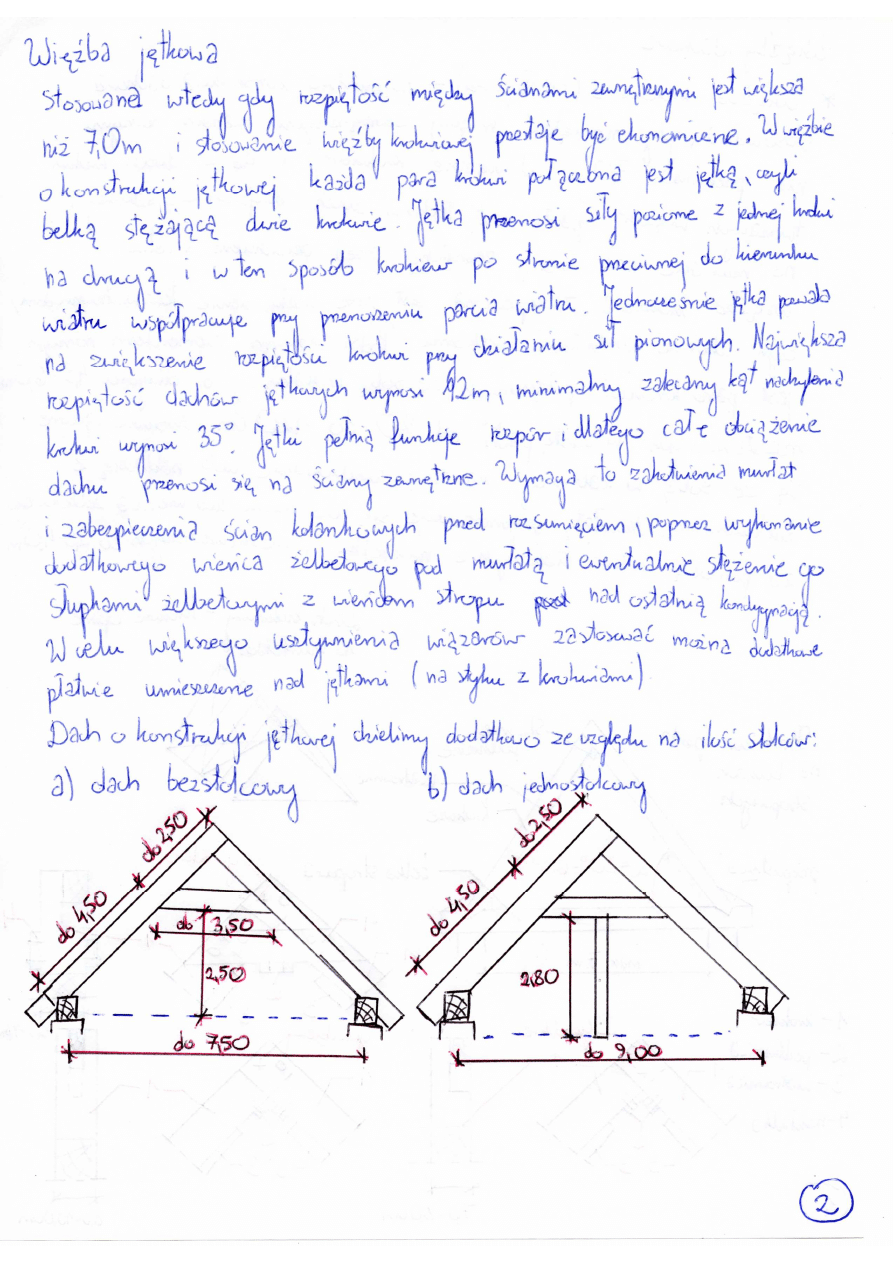 Więźba jętkowa
Stosowana wtedy gdy rozpiętość między ścianami zewnętrznymi jest większa
niż 7,0m i stosowanie więźby krokwiowej przestaje być ekonomiczne. W więźbie
o konstrukcji jętkowej każda para krokwi połączona jest jętką, czyli
belką stężającą dwie krokwie. Jętka przenosi siły poziome z jednej krokwi
na drugą i w ten sposób krokiew po stronie przeciwnej do kierunku
wiatru współpracuje przy przenoszeniu parcia wiatru. Jednocześnie jętka pozwala
na zwiększenie rozpiętości krokwi przy działaniu sił pionowych. Największa
rozpiętość dachów jętkowych wynosi 12m, minimalny zalecany kąt nachylenia
krokwi wynosi 35°. Jętki pełnią funkcje rozpór i dlatego całe obciążenie
dachu przenosi się na ściany zewnętrzne. Wymaga to zakotwienia murłat
i zabezpieczenia ścian kolankowych przed rozsunięciem, poprzez wykonanie
dodatkowego wieńca żelbetowego pod murłatą i ewentualnie stężenie go
słupkami żelbetowymi z wieńcem stropu nad ostatnią kondygnacją.
W celu większego usztywnienia wiązarów zastosować można dodatkowe
płatwie umieszczone nad jętkami (na styku z krokwiami)
Dach o konstrukcji jętkowej dzielimy dodatkowo ze względu na ilość stolców:
a) dach bezstolcowy b) dach jednostolcowy
do 2,50
do 4,50
do 3,50
2,50
do 7,50
do 2,50
do 4,50
2,80
do 9,00
2